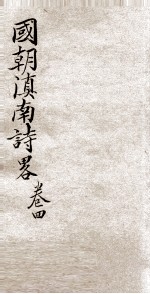 國朝滇南詩畧卷四